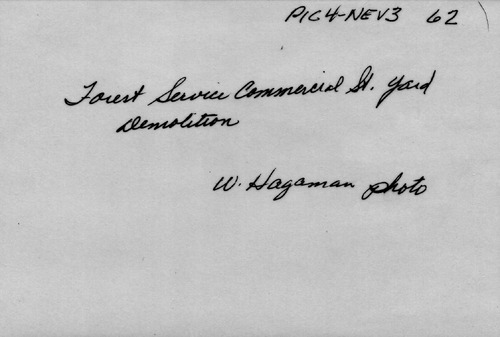 PIC4-NEV3 62
Forest Service Commercial St. Yard
Demolition
W. Hagaman photo